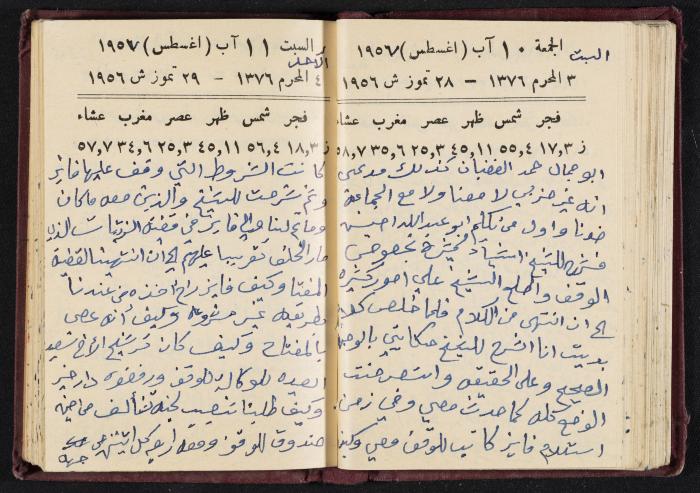 السبت الجمعة ١٠ آب (اغسطس) ١٩٥٧
٣ المحرم ١٣٧٦ - ٢٨ تموز ش ١٩٥٦
فجر شمس ظهر عصر مغرب عشاء
ز ١٧,٣ ٥٥,٤ ٤٥,١١ ٢٥,٣ ٣٥,٦ ٥٨,٧
ابو جمال حمد الغضبان كذلك مدعي
انه غير حزبي لا معنا ولا مع الجماعة
خونا واول من تكلم ابو عبدالله احسين
فشرح للشيخ اشياء بخصوص
الوقف واطلع الشيخ على امور كثيره
الى ان انتهى من الكلام فلما خلص كلامه
بديت انا اشرح للشيخ حكايتي بالوجه
الصحيح وعلى الحقيقه واستعرضت
الوضع كله كما حدث معي وفي زمن
استلام فايز كاتب للوقف معي وكيف
السبت ١١ آب (اغسطس) ١٩٥٧
الاحد
٤ المحرم ١٣٧٦ - ٢٩ تموز ش ١٩٥٦
فجر شمس ظهر عصر مغرب عشاء
ز ١٨,٣ ٥٦,٤ ٤٥,١١ ٢٥,٣ ٣٤,٦ ٥٧,٧
كانت الشروط التي وقف عليها فايز
وثم شرحت للشيخ والذين معه ما كان
وما في قضية الزيتات الذي
صار الخلف تقريبا عليهم الى ان انتهينا لقضية
المفتاح وكيف فايز راح اخذه من عندنا
بطريقه غير مشروعه وكيف أنه عصى
بالمفتاح وكيف كان ترشيح الأخ سعيد
العبده للوكالة للوقف ورفضوه
وكيف طلبنا تنصيب لجنه تتألف
صندوق للوقف اربع كل اثنين من جهه